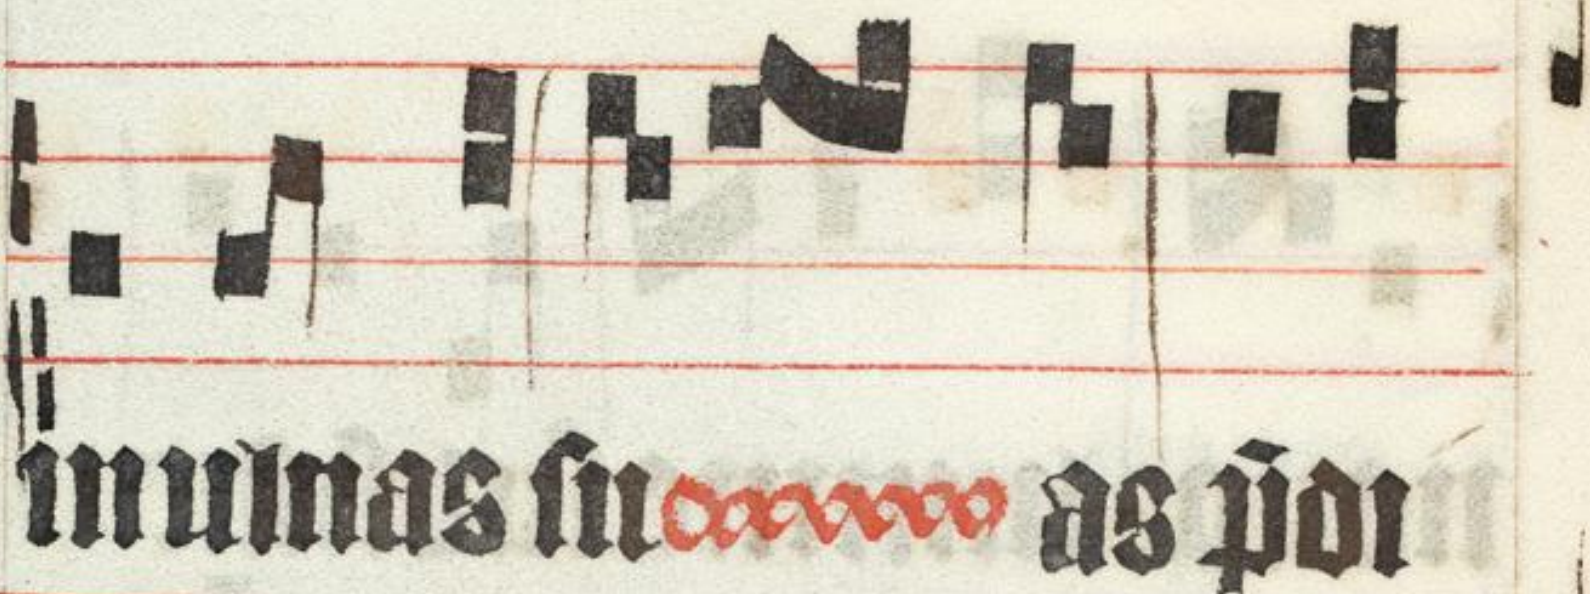 in ulnas suas p̄di